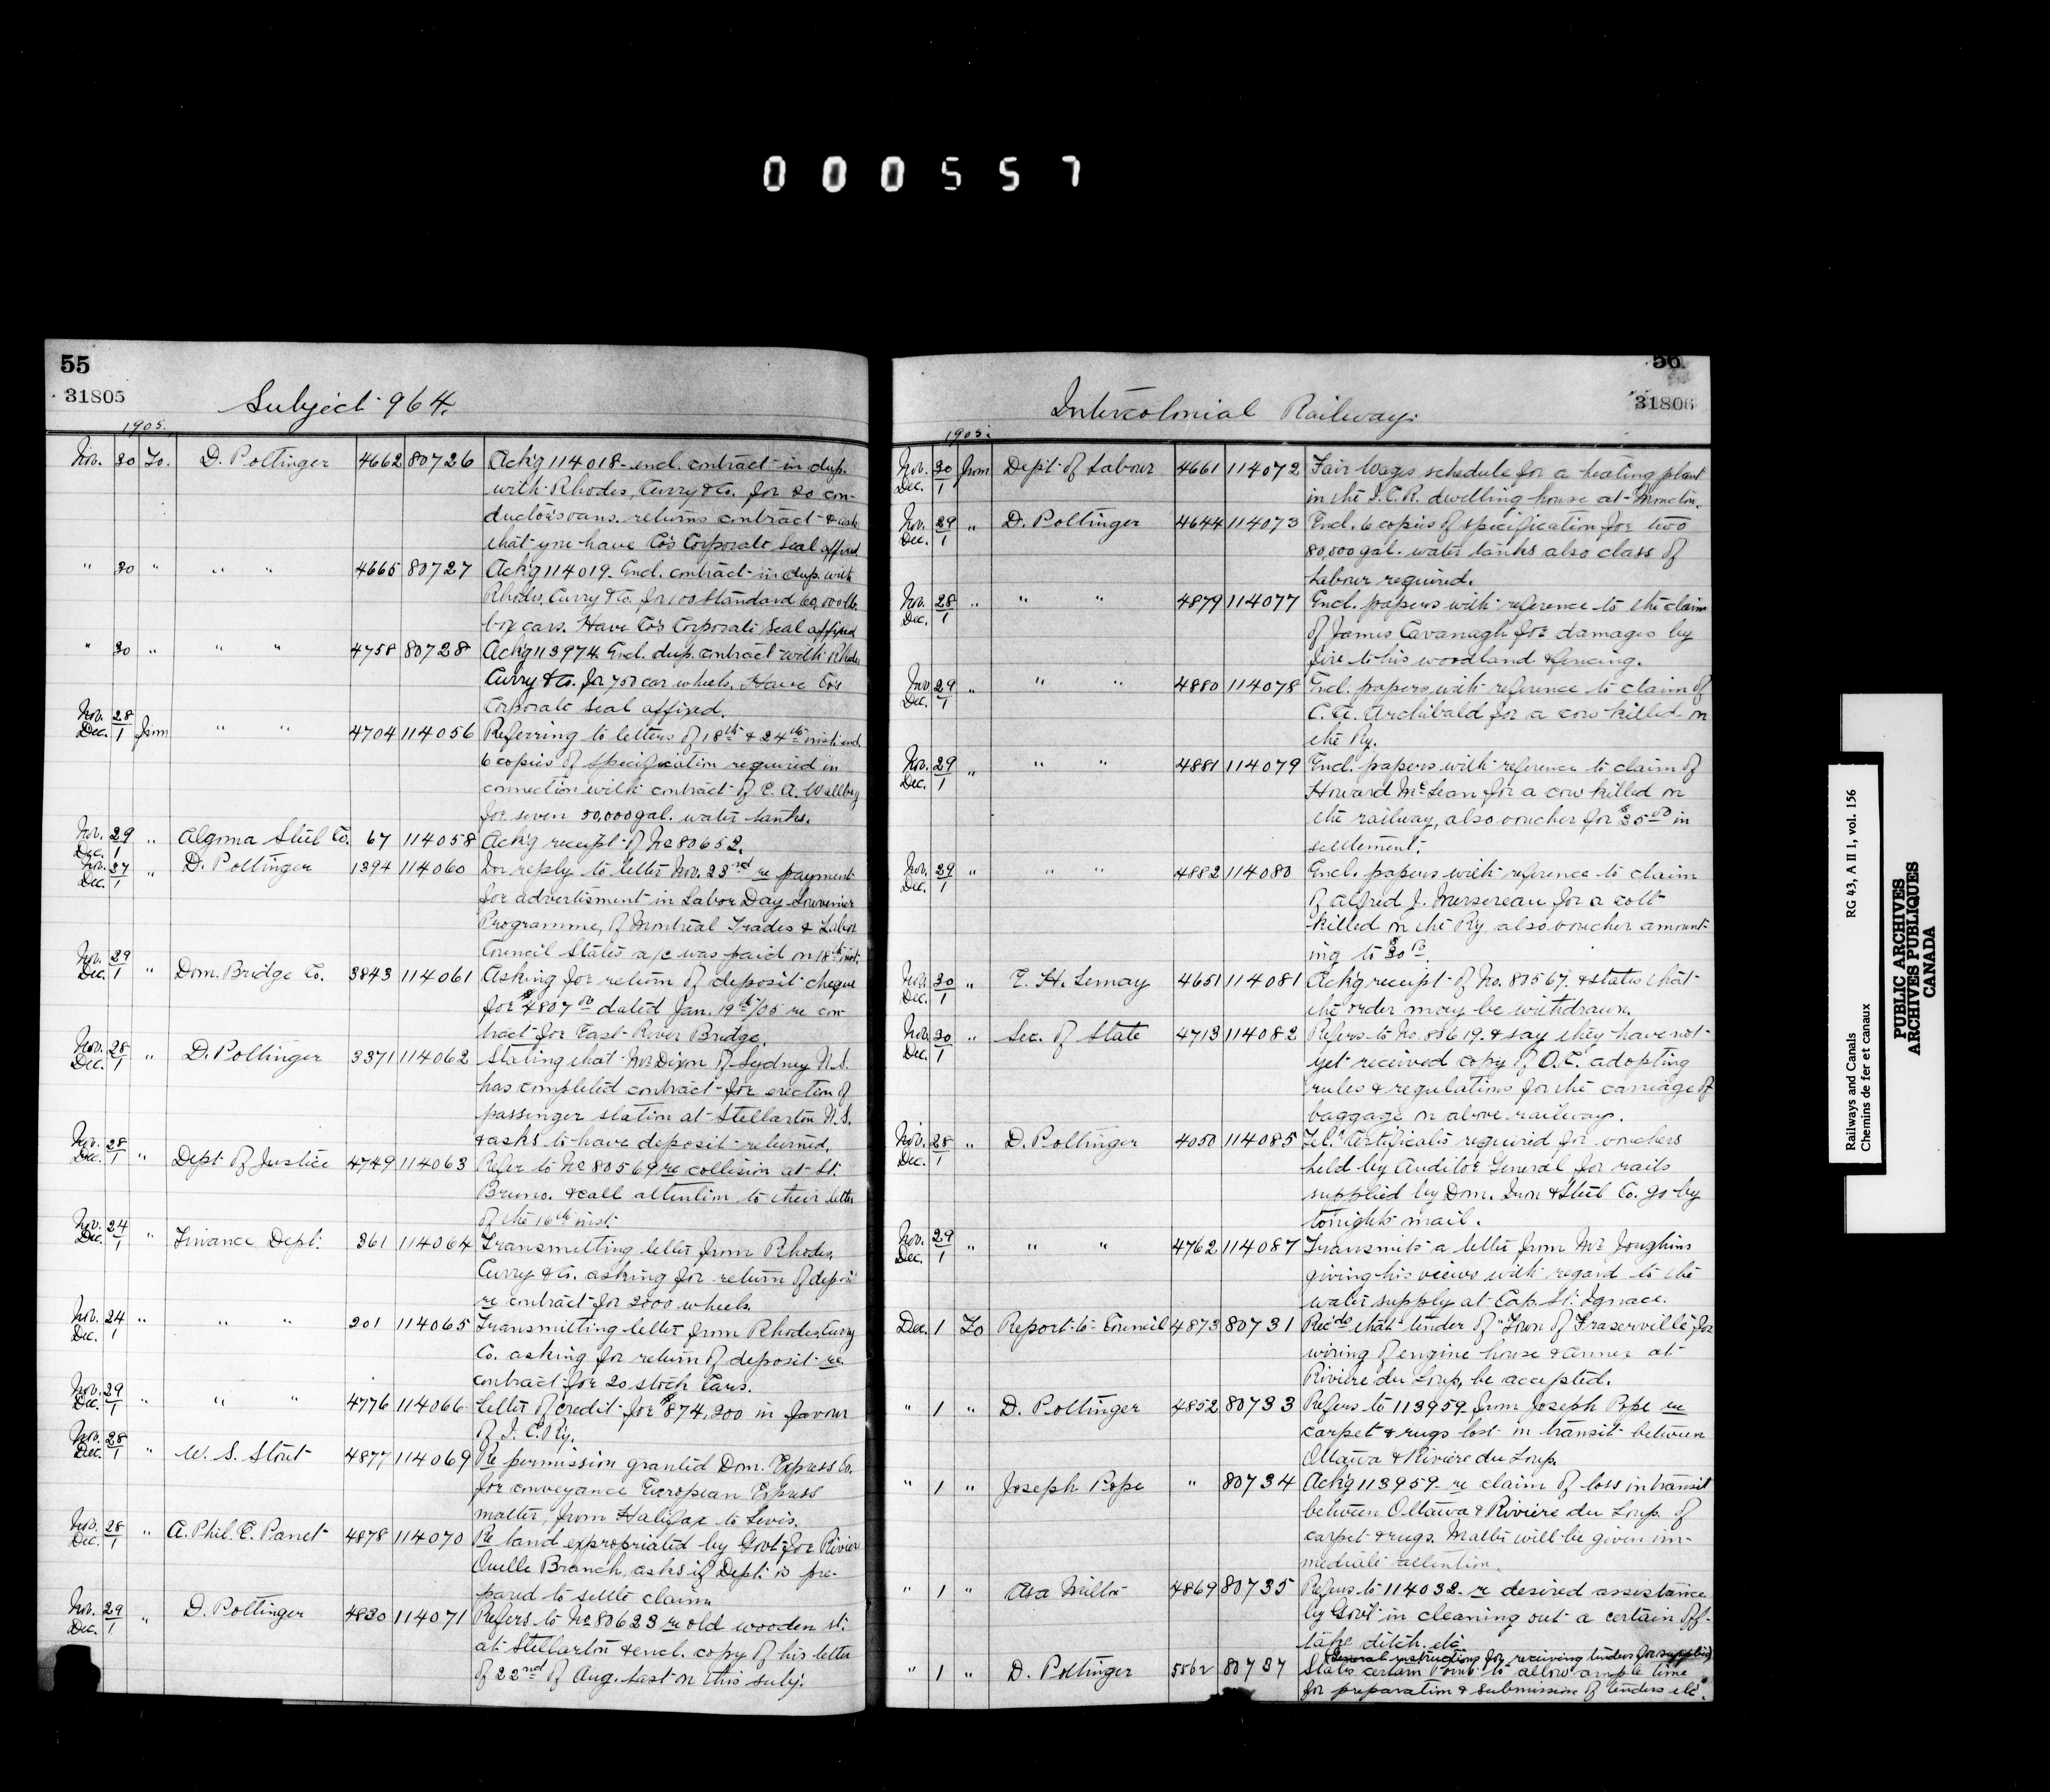 000557
55
31805
Subject 964.
1905.
Nov. 30 To. D. Pottinger 4662 80726 Ack'g 114018 encl. contract in dup.
with Rhodes, Curry & Co. for 20 con-
ductor's vans. returns contract & ask
that you have Co's Corporate Seal affixed
" 30 " " " 4665 80727 Ack'g 114019. Encl. contract in dup. with
Rhodes, Curry & Co. for 100 Standard 60,000 lb.
box cars. Have Co's Corporate Seal affixed
" 30 " " " 4758 80728 Ack'g 113974. Encl. dup. contract with Rhodes
Curry & Co. for 700 car wheels. Have Co's
Corporate Seal affixed.
Nov. 28 Dec. 1 from " " 4704 114056 Referring to letters of 18th & 24th inst. encl.
6 copies of specification required in
connection with contract of E. A. Wallberg
for seven 50,000 gal. water tanks.
Nov. 29 Dec. 1 " Algoma Steel Co. 67 114058 Ack'g receipt of No 80652.
Nov. 27 Dec. 1 " D. Pottinger 1394 114060 In reply to letter Nov. 23rd re payment
for advertisment in Labor Day Souvenier
Programme, of Montreal Trades & Labor
Council States a/c was paid on 18th inst.
Nov. 29 Dec. 1 " Dom. Bridge Co. 3843 114061 Asking for return of deposit cheque
for $4807 00 dated Jan. 19th/05 re con-
tract for East River Bridge.
Nov. 28 Dec. 1 " D. Pottinger 3371 114062 Stating that Mr Dixon of Sydney N.S.
has completed contract for erection of
passenger station at Stellarton N.S.
& asks to have deposit returned.
Nov. 28 Dec. 1 " Dept. of Justice 4749 114063 Refer to No 80569 re collision at St.
Bruno. & call attention to their letter
of the 16th inst.
Nov. 24 Dec. 1 " Finance Dept. 361 114064 Transmitting letter from Rhodes,
Curry & Co. asking for return of deposit
re contract for 2000 wheels.
Nov. 24 Dec. 1 " " " 201 114065 Transmitting letter from Rhodes, Curry
Co. asking for return of deposit re
contract for 20 stock Cars.
Nov. 29 Dec. 1 " " " 4776 114066 Letter of Credit for $874,200 in favour
of I. C. Ry.
Nov. 28 Dec. 1 " W. S. Stout 4877 114069 Re permission granted Dom. Express Co.
for conveyance European Express
matter, from Halifax to Levis.
Nov. 28 Dec. 1 " A. Phil. E. Panet 4878 114070 Re land expropriated by Govt for Rivier
Ouelle Branch, asks if Dept. is pre-
pared to settle claim.
Nov. 29 Dec. 1 " D. Pottinger 4830 114071 Refers to No 80623 re old wooden st.
at Stellarton & encl. copy of his letter
of 22nd of Aug. last on this subj.
56
31806
Intercolonial Railway.
1905.
Nov. 30 Dec. 1 from Dept. of Labour 4661 114072 Fair Wages schedule for a heating plant
in the I.C.R. dwelling house at Moncton.
Nov. 29 Dec. 1 " D. Pottinger 4644 114073 Encl. 6 copies of specification for two
80,000 gal. water tanks also class of
Labour required.
Nov. 28 Dec. 1 " " " 4879 114077 Encl. papers with reference to the claim
of James Cavanagh for damages by
fire to his woodland & fencing.
Nov. 29 Dec. 1 " " " 4880 114078 Encl. papers with reference to claim of
C. A. Archibald for a cow killed on
the Ry.
Nov. 29 Dec. 1 " " " 4881 114079 Encl. papers with reference to claim of
Howard McLean for a cow killed on
the railway, also voucher for $35 00 in
settlement.
Nov. 29 Dec. 1 " " " 4882 114080 Encl. papers with reference to claim
of Alfred J. Mersereau for a colt
killed on the Ry. also voucher amount-
ing to $30 00.
Nov. 30 Dec. 1 " E. H. Lemay 4651 114081 Ack'g receipt of No. 80567. & states that
the order may be withdrawn.
Nov. 30 Dec. 1 " Sec. of State 4713 114082 Refers to No. 80619. & say they have not
yet received copy of O.C. adopting
rules & regulations for the carriage of
baggage on above railway.
Nov. 28 Dec. 1 " D. Pottinger 4050 114085 Tel. Certificates required for vouchers
held by Auditor General for rails
supplied by Dom. Iron & Steel Co. go by
tonights mail.
Nov. 29 Dec. 1 " " " 4762 114087 Transmits a letter from Mr Joughins
giving his views with regard to the
water supply at Cap. St. Ignace.
Dec. 1 To Report to Council 4873 80731 Recds that tender of "Town of Fraserville" for
wiring of engine house & annex at
Riviere du Loup, be accepted.
" 1 " D. Pottinger 4852 80733 Refers to 113959 from Joseph Pope re
carpet & rugs lost in transit between
Ottawa & Riviere du Loup.
" 1 " Joseph Pope " 80734 Ack'g 113959 re claim of loss in transit
between Ottawa & Riviere du Loup. of
carpet & rugs. Matter will be given im-
mediate attention.
" 1 " Asa Milton 4869 80735 Refers to 114032 re desired assistance
by Govt in cleaning out a certain off-
take ditch. etc
(General instructions for receiving tenders for supplies)
" 1 " D. Pottinger 5562 80737 States certain points to allow ample time
for preparation & submission of tenders etc.
Railways and Canals RG 43, A II 1, vol. 156
Chemins de fer et canaux
PUBLIC ARCHIVES
ARCHIVES PUBLIQUES
CANADA